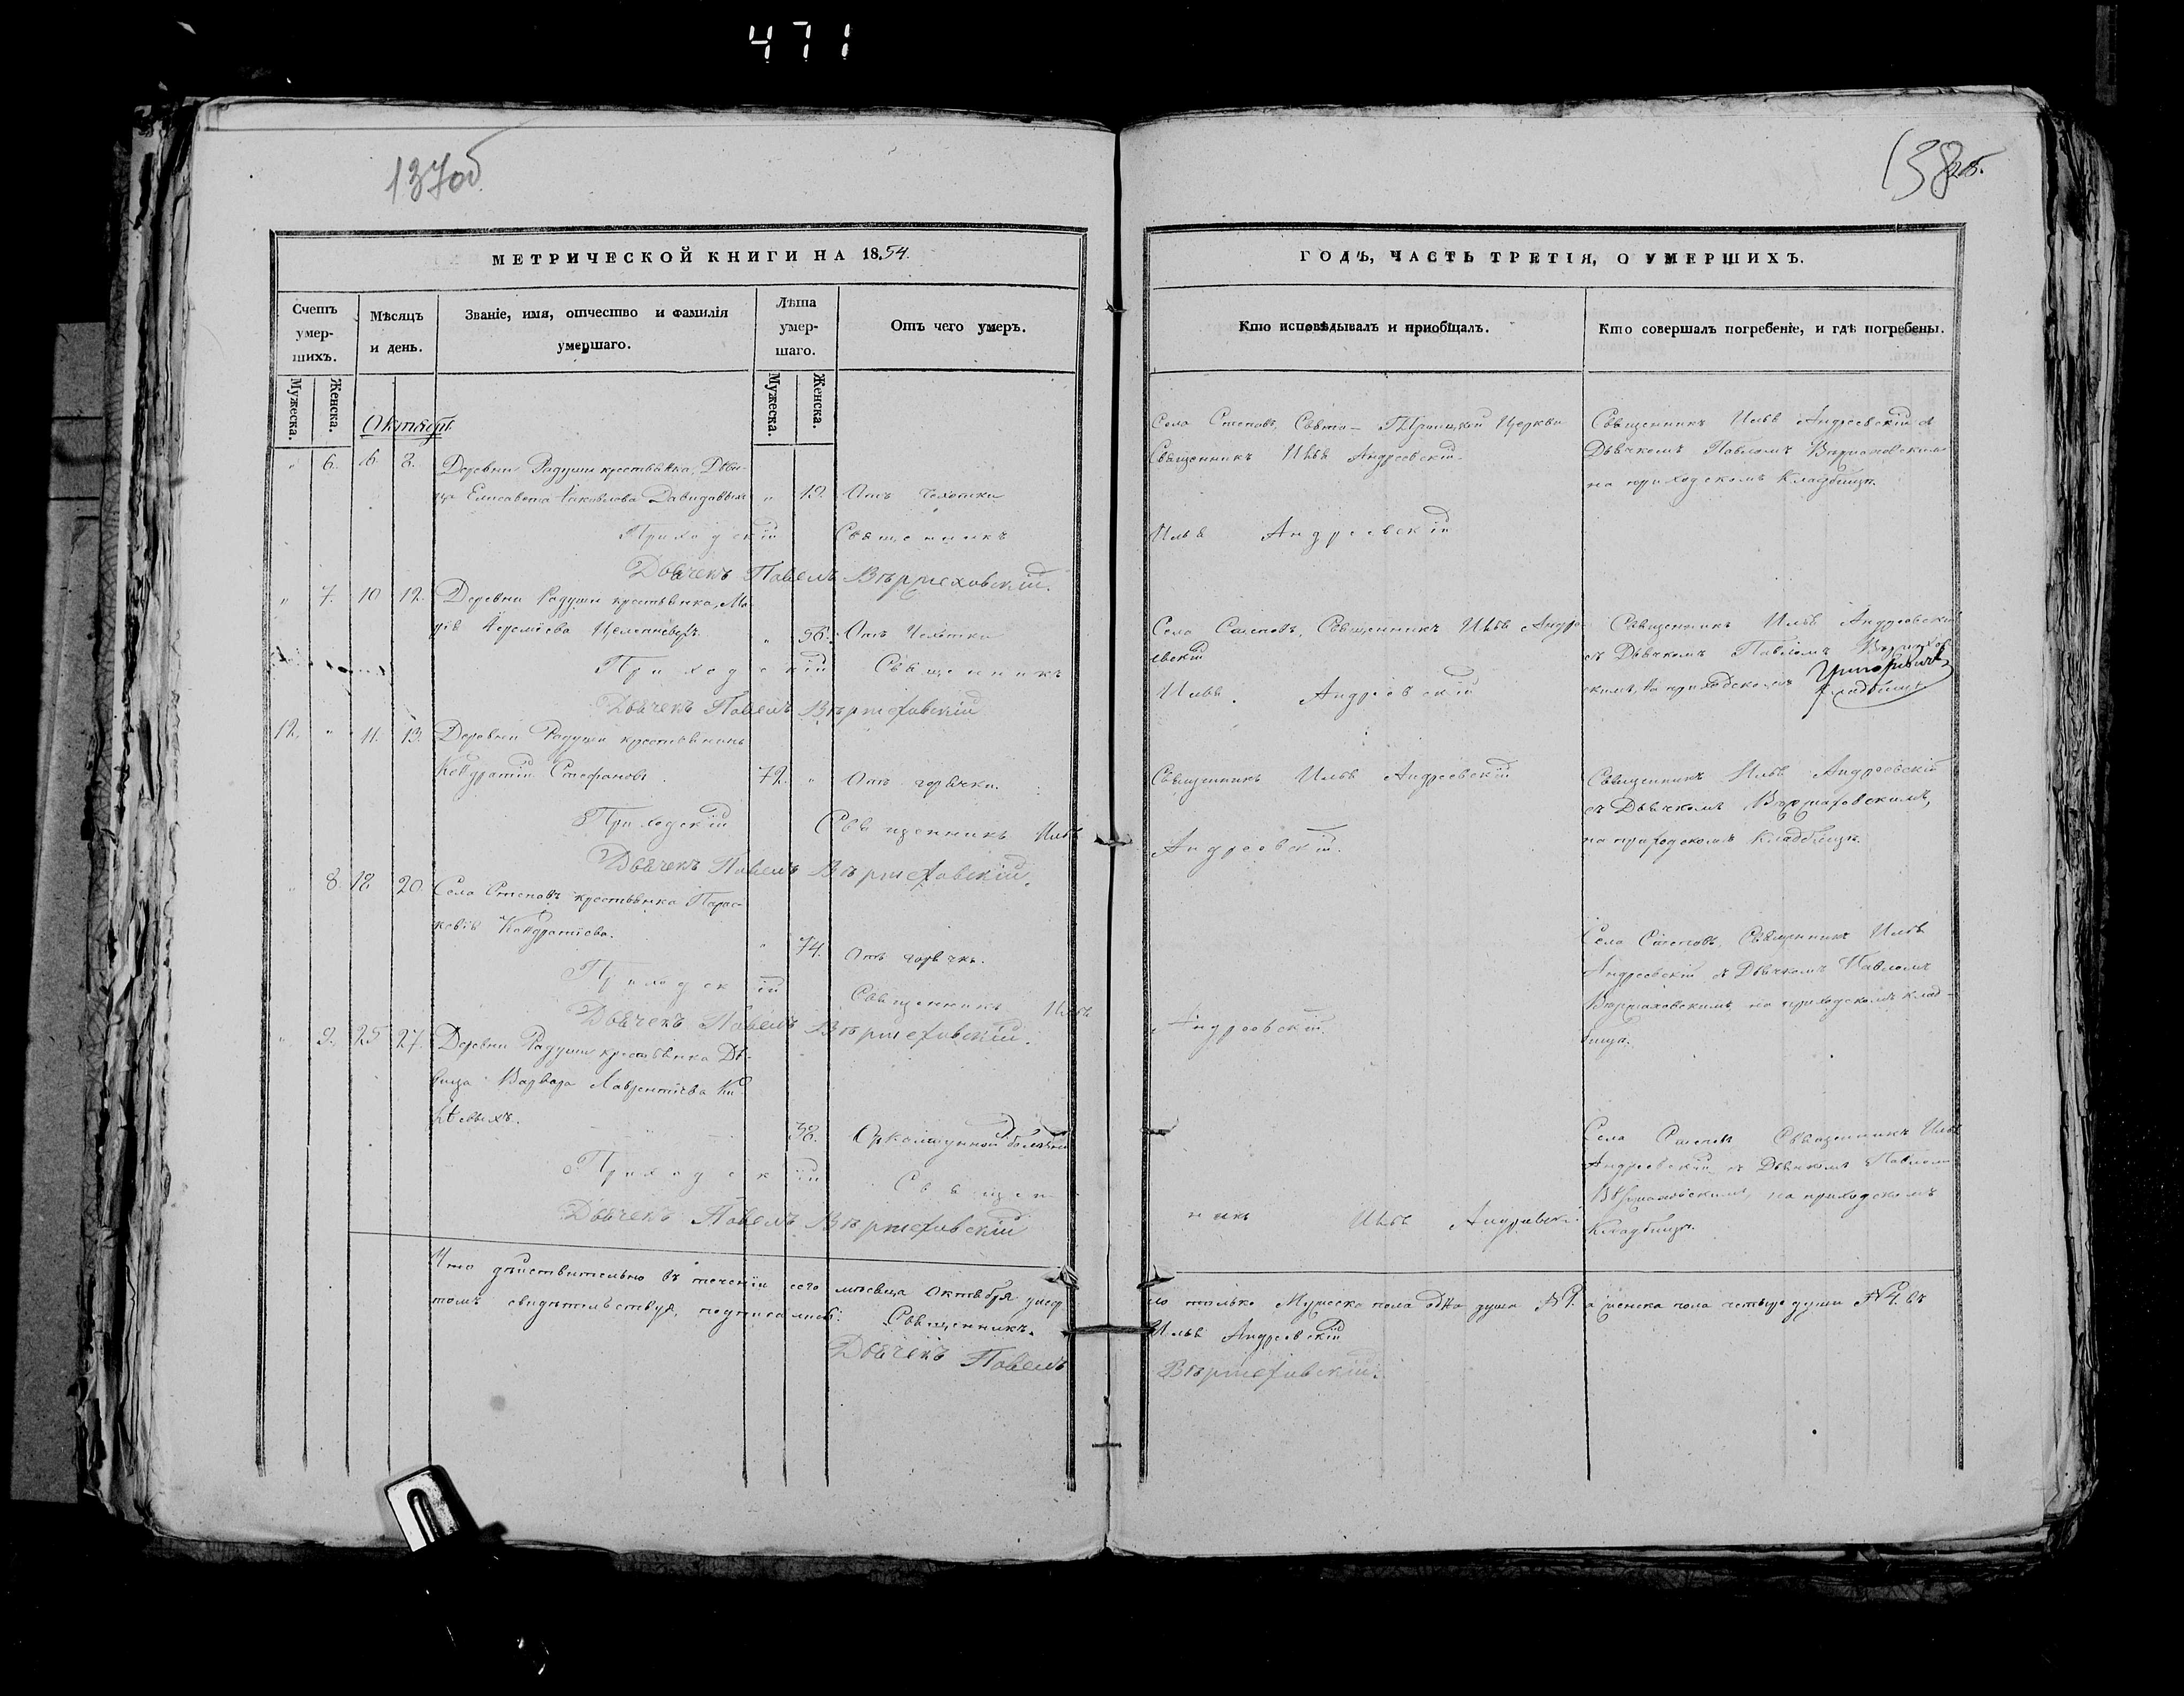 471
137об
138
МЕТРИЧЕСКОЙ КНИГИ НА 1854.
ГОДЪ, ЧАСТЬ ТРЕТІЯ, О УМЕРШИХЪ.
Счетъ умер-шихъ.
Мѣсяцъ и день.
Званіе, имя, отчество и фамилія умершаго.
Лѣта умер-шаго.
Отъ чего умеръ.
Кто исповѣдывалъ и приобщалъ.
Кто совершалъ погребеніе, и гдѣ погребены.
Мужеска.
Женска.
Мужеска.
Женска.
Октябрь
" 6. 6. 8. Деревни Радуши крестьянка, Дѣви-
ца Елисавета Іаковлева " 12. Отъ Чахотки
Села Степовъ, Свято-Троицкой Церкви
Священникъ Илья Андреевскій
Священникъ Илья Андреевскій съ
Дьячкомъ Павломъ
на приходскомъ Кладбищѣ.
Приходскій Священникъ Илья Андреевскій
Дьячекъ Павелъ Вѣржеховскій.
" 7. 10 12. Деревни Радуши крестьянка, Ма-
рія Іереміева " 56. Отъ Чахотки
Село Степовъ, Священникъ Илья Андре-
евскій
Священникъ Илья Андреевскій
съ Дьячкомъ Павломъ
на приходскомъ кладбищѣ
Приходскій Священникъ Илья Андреевскій
Дьячекъ Павелъ Вѣржеховскій
12. " 11. 13. Деревни Радуши крестьянинъ
Кондратій Стефановъ. 72. " Отъ горячки.
Священникъ Илья Андреевскій
Священникъ Илья Андреевскій
съ Дьячкомъ Вѣржаховскимъ,
на приходскомъ Кладбищѣ.
Приходскій Священникъ Илья Андреевскій.
Дьячекъ Павелъ Вѣржеховскій.
" 8. 18 20. Села Степовъ крестьянка Парас-
кевія Кондратіева. " 74. Отъ горячки.
Села Степовъ, Священникъ Илья
Андреевскій съ Дьячкомъ Павломъ
Вѣржаховскимъ на приходскомъ клад-
бищѣ.
Приходскій Священникъ Илья Андреевскій.
Дьячекъ Павелъ Вѣржеховскій.
" 9. 25 27. Деревни Радуши крестьянка Дѣ-
вица Варвара Лаврентіева
38.
Села Степовъ Священникъ Илья
Андреевскій съ Дьячкомъ Павломъ
Вѣржаховскимъ, на приходскомъ
Кладбищѣ.
Приходскій Священникъ Илья Андреевскій
Дьячекъ Павелъ Вѣржеховскій
Что дѣйствительно въ теченіи сего мѣсяца Октября умер-
ло только Мужеска пола одна душа №1. а женска пола четыре души №4. въ
томъ свидѣтельствуя, подписались: Священникъ Илья Андреевскій
Дьячекъ Павелъ Вѣржеховскій.